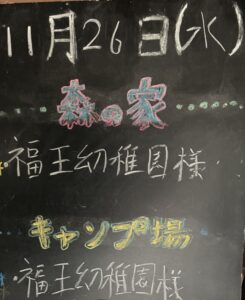 11月26日(水)
森の家
・福王幼稚園様
キャンプ場
・福王幼稚園様